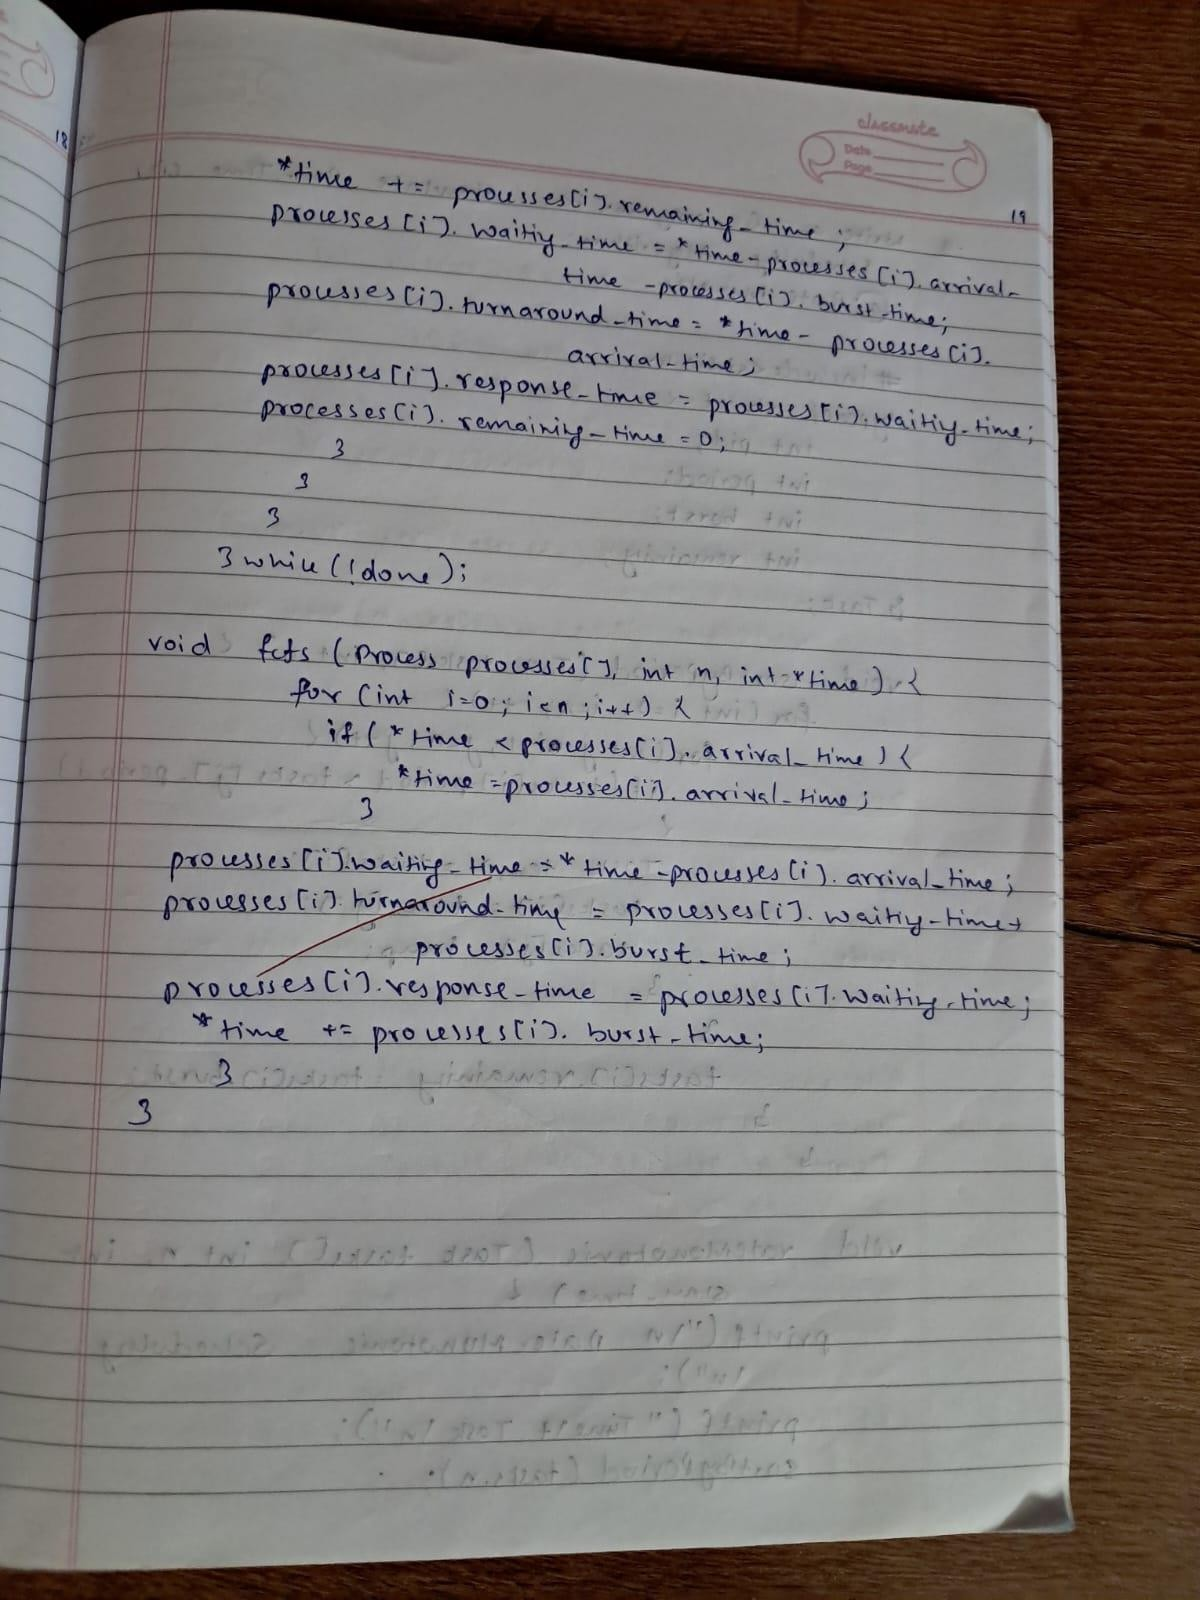 18
classmate
Date
Page
19
*time += processes[i].remaining_time;
processes[i].waitiy_time = *time-processes[i].arrival_
time -processes[i].burst_time;
processes[i].turnaround_time = *time- processes[i].
arrival_time;
processes[i].response_time = processes[i].waitiy_time;
processes[i].remaining_time = 0;
}
}
}
}while(!done);
void fcfs (Process processes[], int n, int *time) {
for (int i=0; i<n; i++) {
if (*time < processes[i].arrival_time) {
*time =processes[i].arrival_time;
}
processes[i].waiting_time = *time -processes[i].arrival_time;
processes[i].turnaround_time = processes[i].waitiy_time+
processes[i].burst_time;
processes[i].response_time = processes[i].waiting_time;
*time += processes[i].burst_time;
}
}